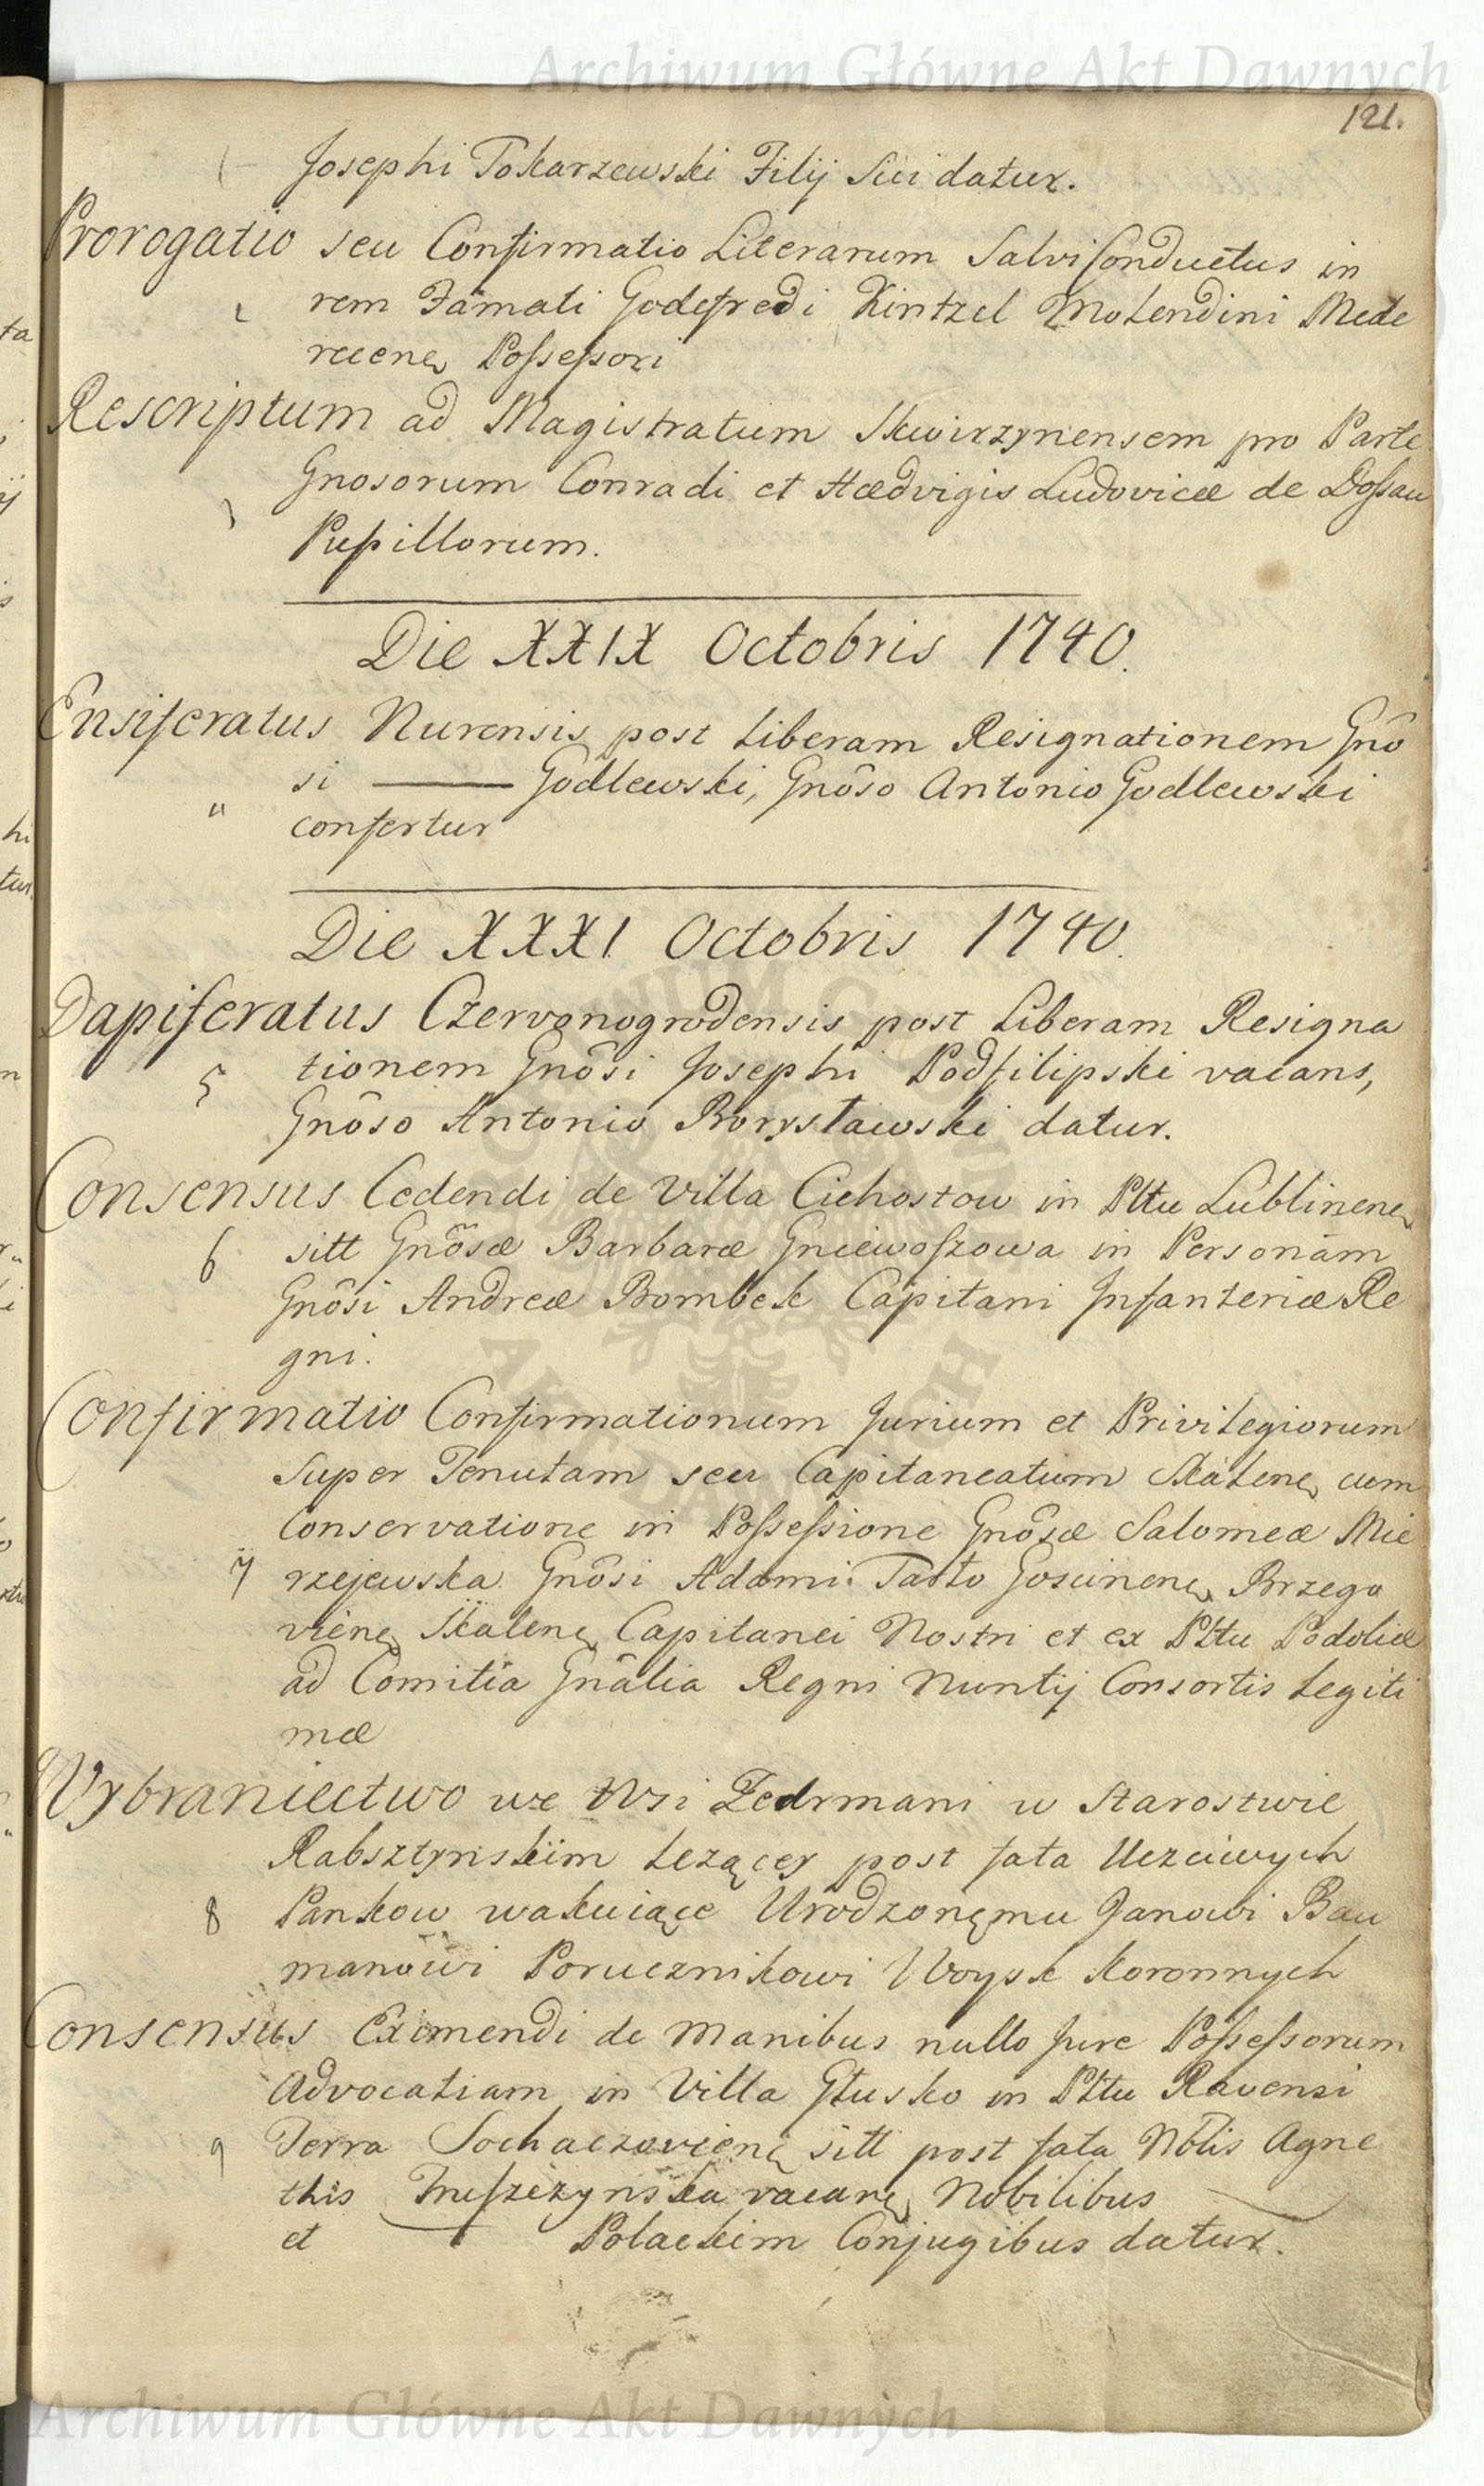 Archiwum Główne Akt Dawnych
121.
Josephi Tokarzewski Filij Sui datur.
Prorogatio seu Confirmatio Literarum Salvi Conductus in
rem Famati Godefredi Kintzel Molendini Mede
recenę Poſseſsori
Rescriptum ad Magistratum Skwirzynensem pro Parte
Gnosorum Conradi et Hædvigis Ludovicæ de Doſsau
3
Pupillorum.
Die XXIX Octobris 1740.
Ensiferatus Nurensis post liberam Resignationem Gnô
si ——— Godlewski, Gnôso Antonio Godlewski
confertur
Die XXXI Octobris 1740.
Dapiferatus Czervonogrodensis post Liberam Resigna
tionem Gnôsi Josephi Podfilipski vacans,
5
Gnôso Antonio Borysławski datur.
Consensus Cedendi de Villa Cichostow in Pltu Lublinenę
6 sitt Gnôsæ Barbaræ Gniewoſzowa in Personam
Gnôsi Andreæ Bombek Capitani Infanteriæ Re
gni.
Confirmatio Confirmationum Jurium et Privilegiorum
Super Tenutam seu Capitaneatum Skalenę cum
Conservatione in Poſseſsione Gnôsæ Salomeæ Mie
7 rzejewska Gnôsi Adami Tarło Goscinenę Brzego
vienę Skalenę Capitanei Nostri et ex Pltu Podoliæ
ad Comitia Gnâlia Regni Nuntij Consortis Legiti
mæ
Wybraniectwo we Wsi Zedrmani w Starostwie
Rabsztynskim lezącey post fata Uczciwych
8 Pankow wakuiące Urodzonęmu Janowi Bau
manowi Porucznikowi Woysk Koronnych
Consensus Eximendi de Manibus nullo Jure Poſseſsorum
Advocatiam in Villa Głusko in Pltu Ravensi
9 Terra Sochaczovienę sitt post fata Nôlis Agne
this vacanę Nobilibus ———
et ——— Polackim Conjugibus datur.
Archiwum Główne Akt Dawnych